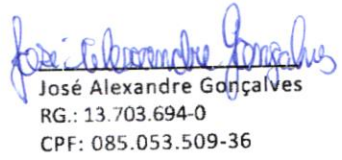 José Alexandre Gonçalves
José Alexandre Gonçalves
RG.: 13.703.694-0
CPF: 085.053.509-36